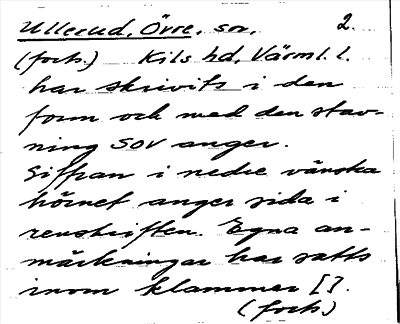 Ullerud, Övre, sov. 2.
(forts.) Kils hd, Värml. l.
har skrivits i den
form och med den stav-
ning SOV anger.
Siffran i nedre vänstra
hörnet anger sida i
renskriften. Egna an-
märkningar har satts
inom klammer [].
(forts)